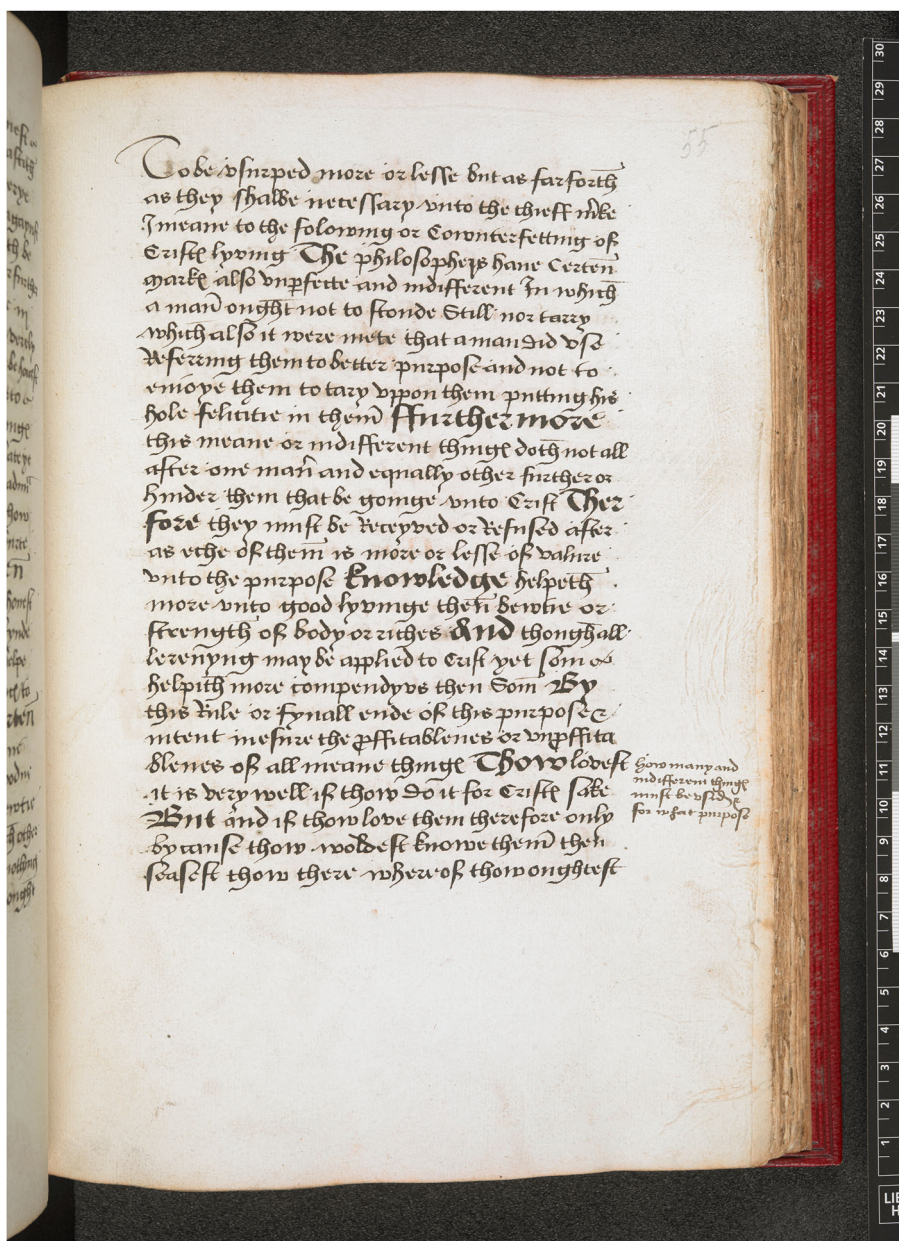 55
To be vsurped more or lesse but as farforth
as they shalbe necessary vnto the chieff m̃ke
I meane to the folowing or Cownterfetting of
Cristꝭ lyving The philosophers haue Certen̄
markꝭ also vnꝑfecte and indifferent In which
a man̄ ought not to stonde Still nor tarry
which also it were mete that a man did vse
Referring them to better purpose and not to
enioye them to tary vppon them putting his
hole felicitie in them̄ Ffurthermore
this meane or indifferent thingꝭ doth not all
after one man̄ and equally other further or
hinder them that be goinge vnto Crist Ther
fore they must be Receyved or Refused after
as eche of them̄ is more or lesse of valure
vnto the purpose knowledge helpeth
more vnto good lyvinge then̄ bewtie or
strength of body or riches And though all
lerenyng may be applied to Crist yet som
helpith more compendyvs then Som̄ By
this Rule or fynall ende of this purpose &
intent mesure the ꝓffitablenes or vnꝓffita
blenes of all meane thingꝭ Thow lovest
it is very well if thow do it for Cristꝭ sake
But and if thow love them therefore only
by cause thow woldest knowe them̄ then
seasest thow there whereof thow oughtest
how many and
indifferent thingꝭ
must be vsid &
for what purpose
30
29
28
27
26
25
24
23
22
21
20
19
18
17
16
15
14
13
12
11
10
9
8
7
6
5
4
3
2
1